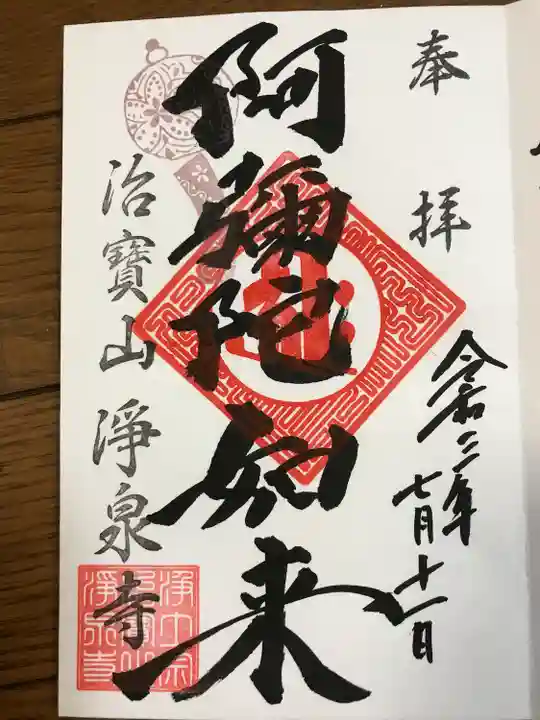 奉拝
令和三年
七月十一日
阿彌陀如来
治寶山淨泉寺